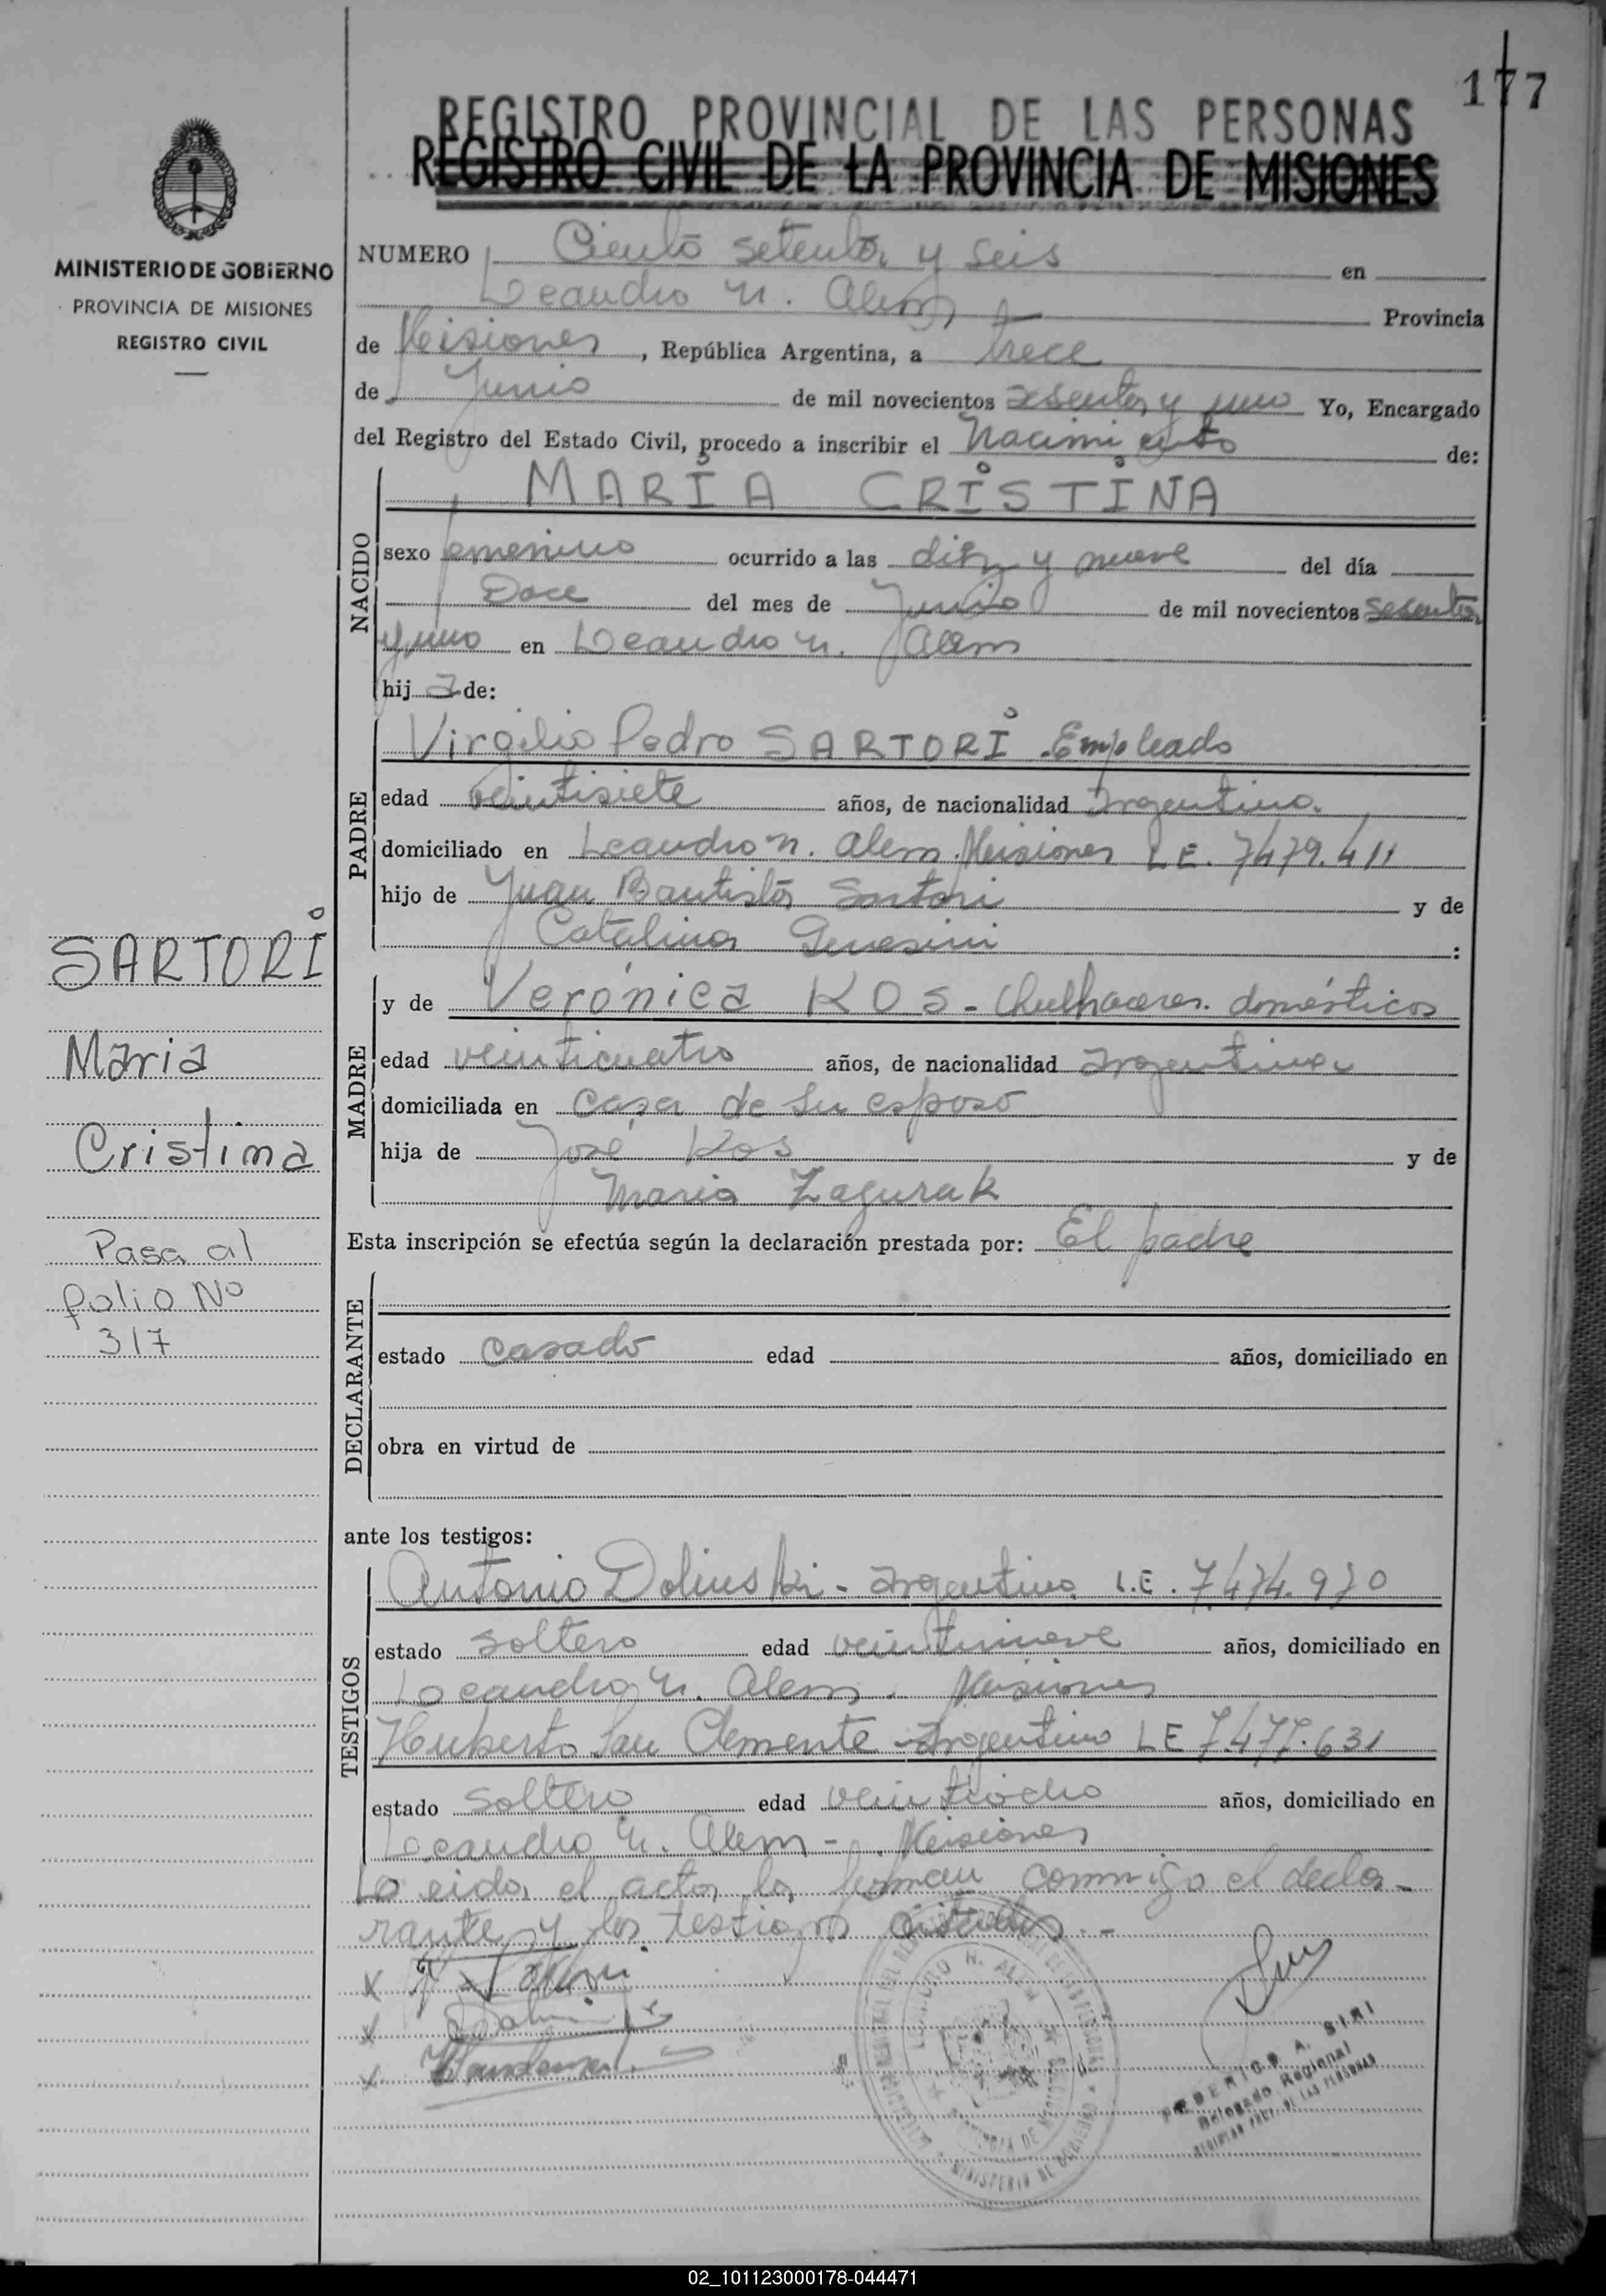 177
REGISTRO PROVINCIAL DE LAS PERSONAS
REGISTRO CIVIL DE LA PROVINCIA DE MISIONES
MINISTERIO DE GOBIERNO
PROVINCIA DE MISIONES
REGISTRO CIVIL
NUMERO Ciento setenta y seis en
Leandro N. Alem Provincia
de Misiones, República Argentina, a trece
de Junio de mil novecientos sesenta y uno Yo, Encargado
del Registro del Estado Civil, procedo a inscribir el Nacimiento de:
NACIDO
MARIA CRISTINA
sexo femenino ocurrido a las diez y nueve del día
Doce del mes de Junio de mil novecientos sesenta
y uno en Leandro N. Alem
hij a de:
PADRE
Virgilio Pedro SARTORI . Empleado
edad veintisiete años, de nacionalidad argentina.
domiciliado en Leandro N. Alem. Misiones L E. 7479.411
hijo de Juan Bautista Sartori y de
Catalina :
MADRE
y de Verónica KOS - Quehaceres domésticos
edad veinticuatro años, de nacionalidad argentina
domiciliada en casa de su esposo
hija de José Kos y de
Maria Zagurak
Esta inscripción se efectúa según la declaración prestada por: El padre
DECLARANTE
estado casado edad años, domiciliado en
obra en virtud de
ante los testigos:
TESTIGOS
Antonio Dolinski - argentino L.E. 7.474.920
estado soltero edad veintinueve años, domiciliado en
Leandro N. Alem . Misiones
Huberto San Clemente - argentino LE 7.477.631
estado soltero edad veintiocho años, domiciliado en
Leandro N. Alem - Misiones
Leida el acta la firman conmigo el decla-
rante y los testigos citados. -
SARTORI
Maria
Cristina
Pasa al
folio No
317
FEDERICO A. SIRI
Delegado Regional
REGISTRO PROV. DE LAS PERSONAS
LEANDRO N. ALEM
MINISTERIO DE GOBIERNO
02_101123000178-044471